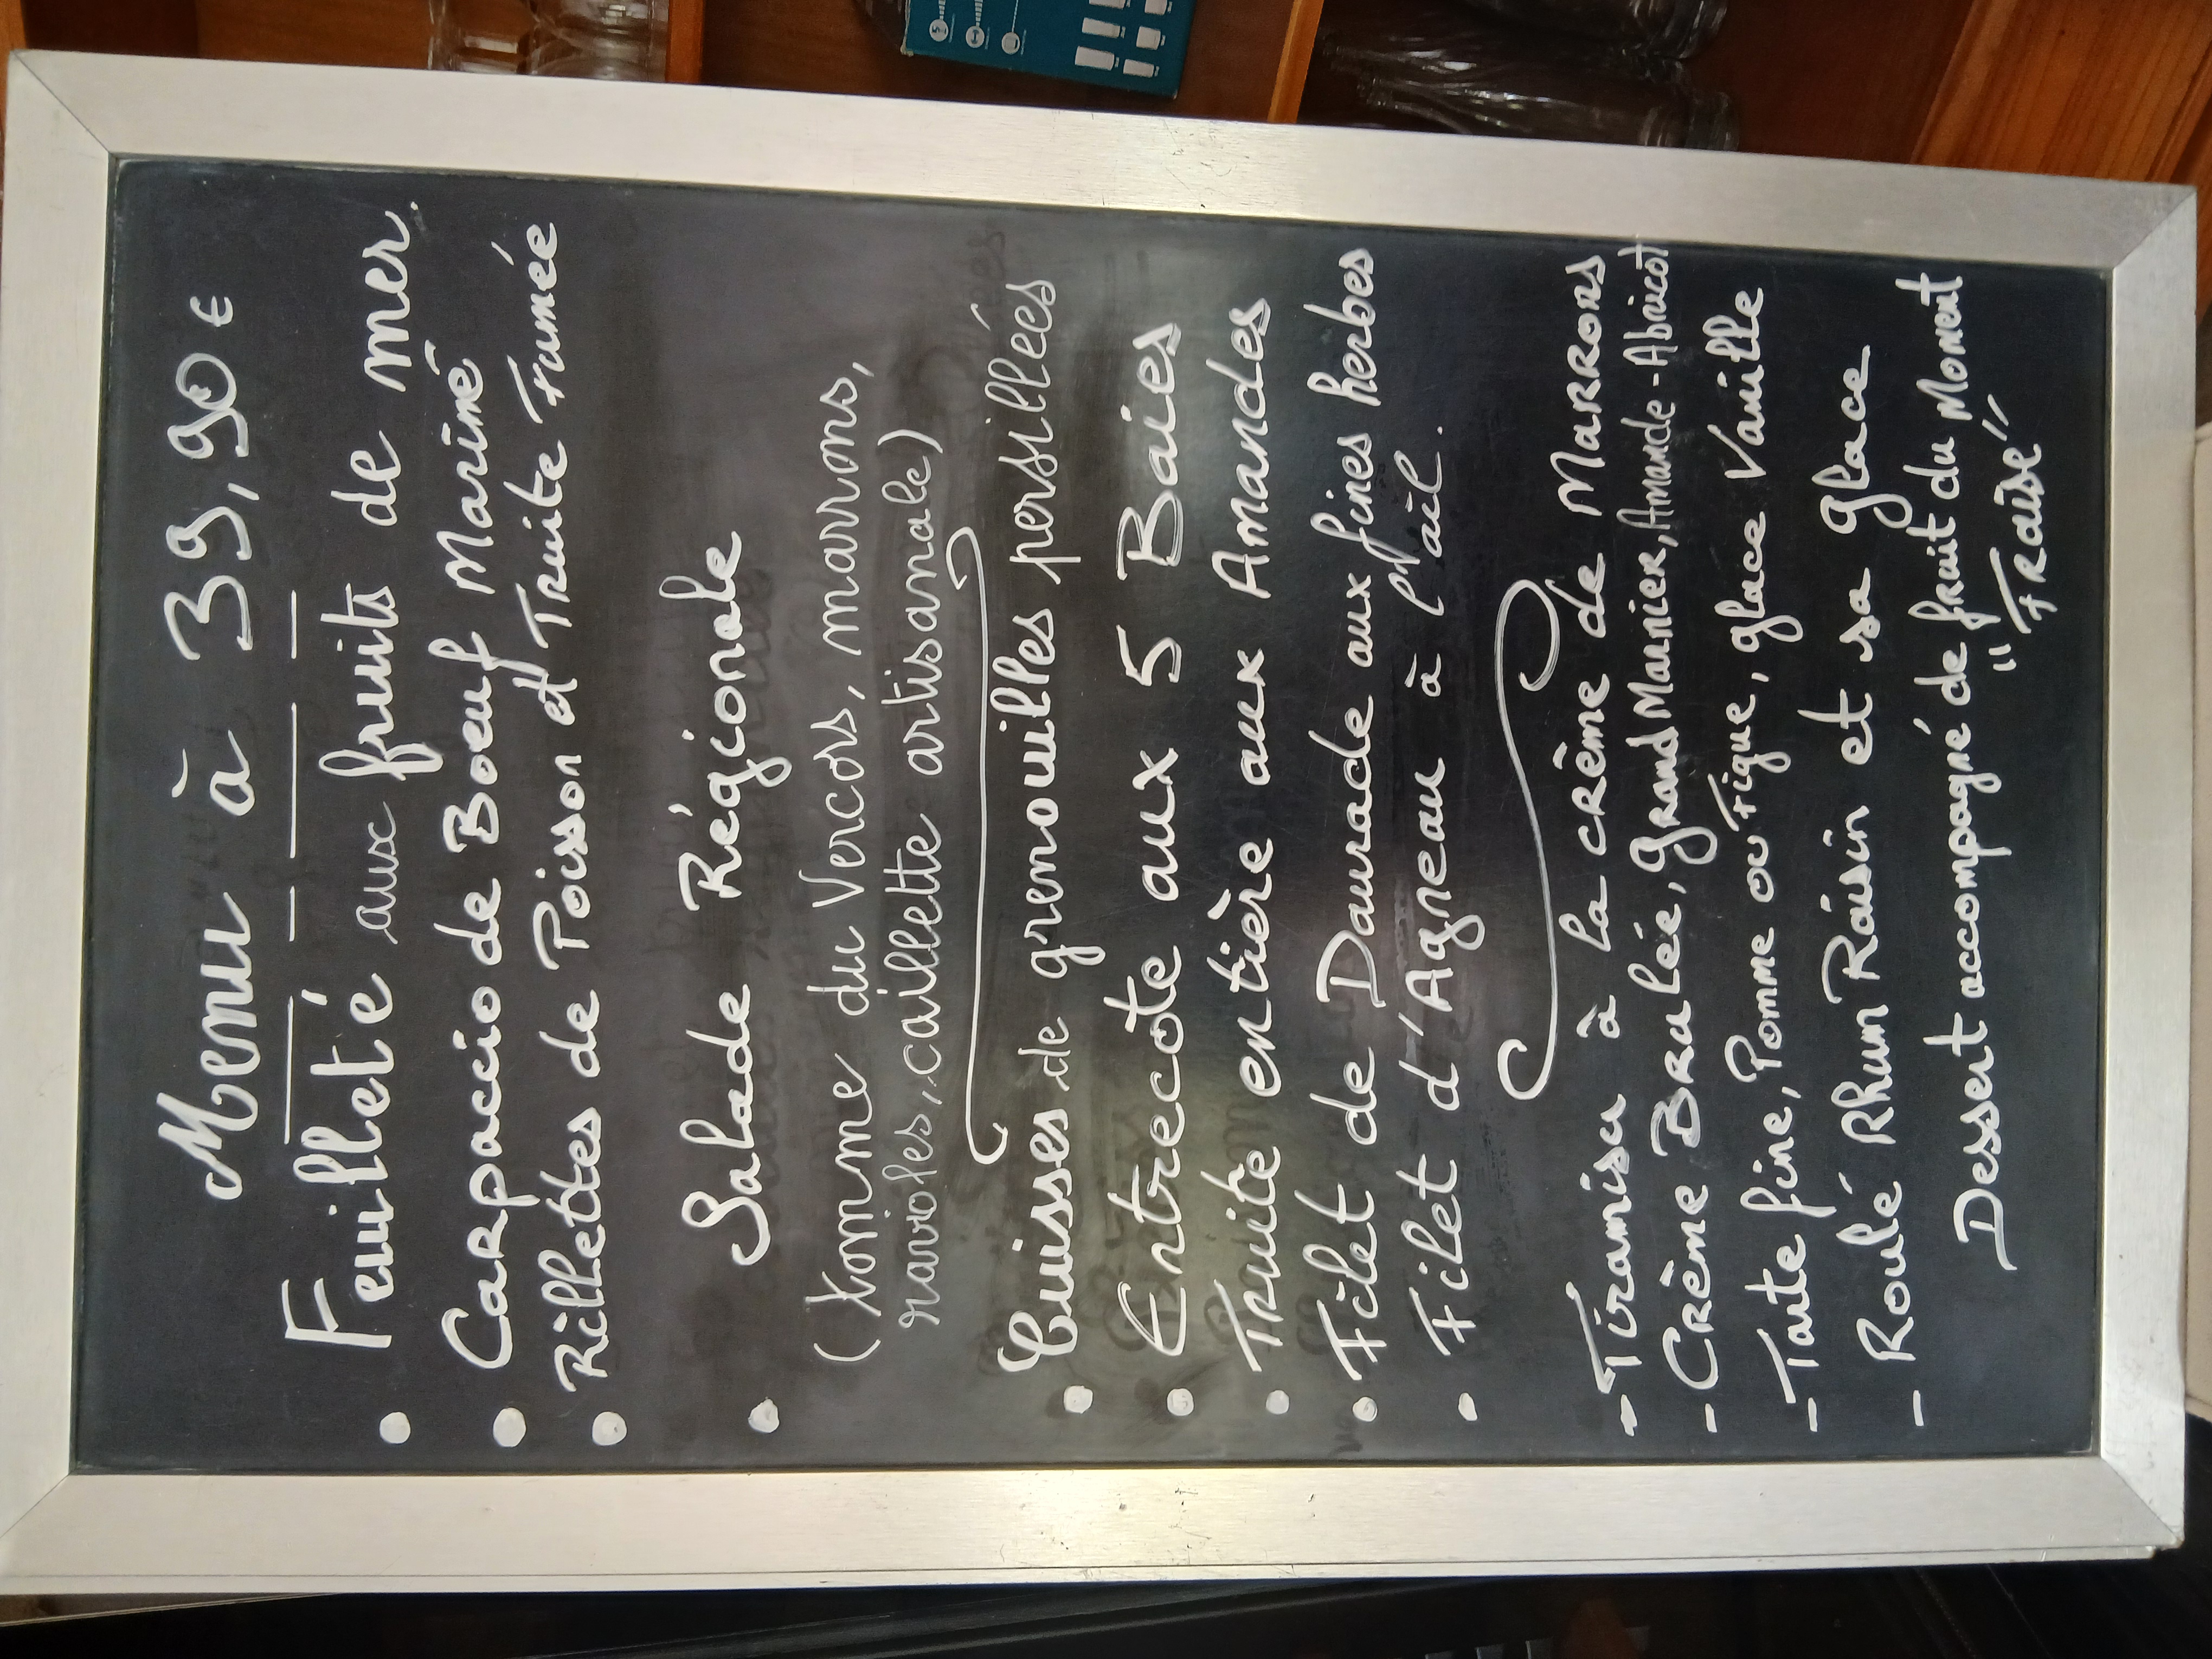 Menu à 39,90 €
• Feuilleté aux fruits de mer.
• Carpaccio de Boeuf Mariné
• Rillettes de Poisson et Truite Fumée
• Salade Régionale
(tomme du Vercors, marrons,
ravioles, caillette artisanale)
• Cuisses de grenouilles persillées
• Entrecote aux 5 Baies
• Truite entière aux Amandes
• Filet de Daurade aux fines herbes
• Filet d'Agneau à l'ail.
- Tiramisu à la crème de Marrons
- Crème Brulée, Grand Marnier, Amande - Abricot
- Tarte fine, Pomme ou Figue, glace Vanille
- Roulé Rhum Raisin et sa glace
Dessert accompagné de fruit du Moment
"Fraise"